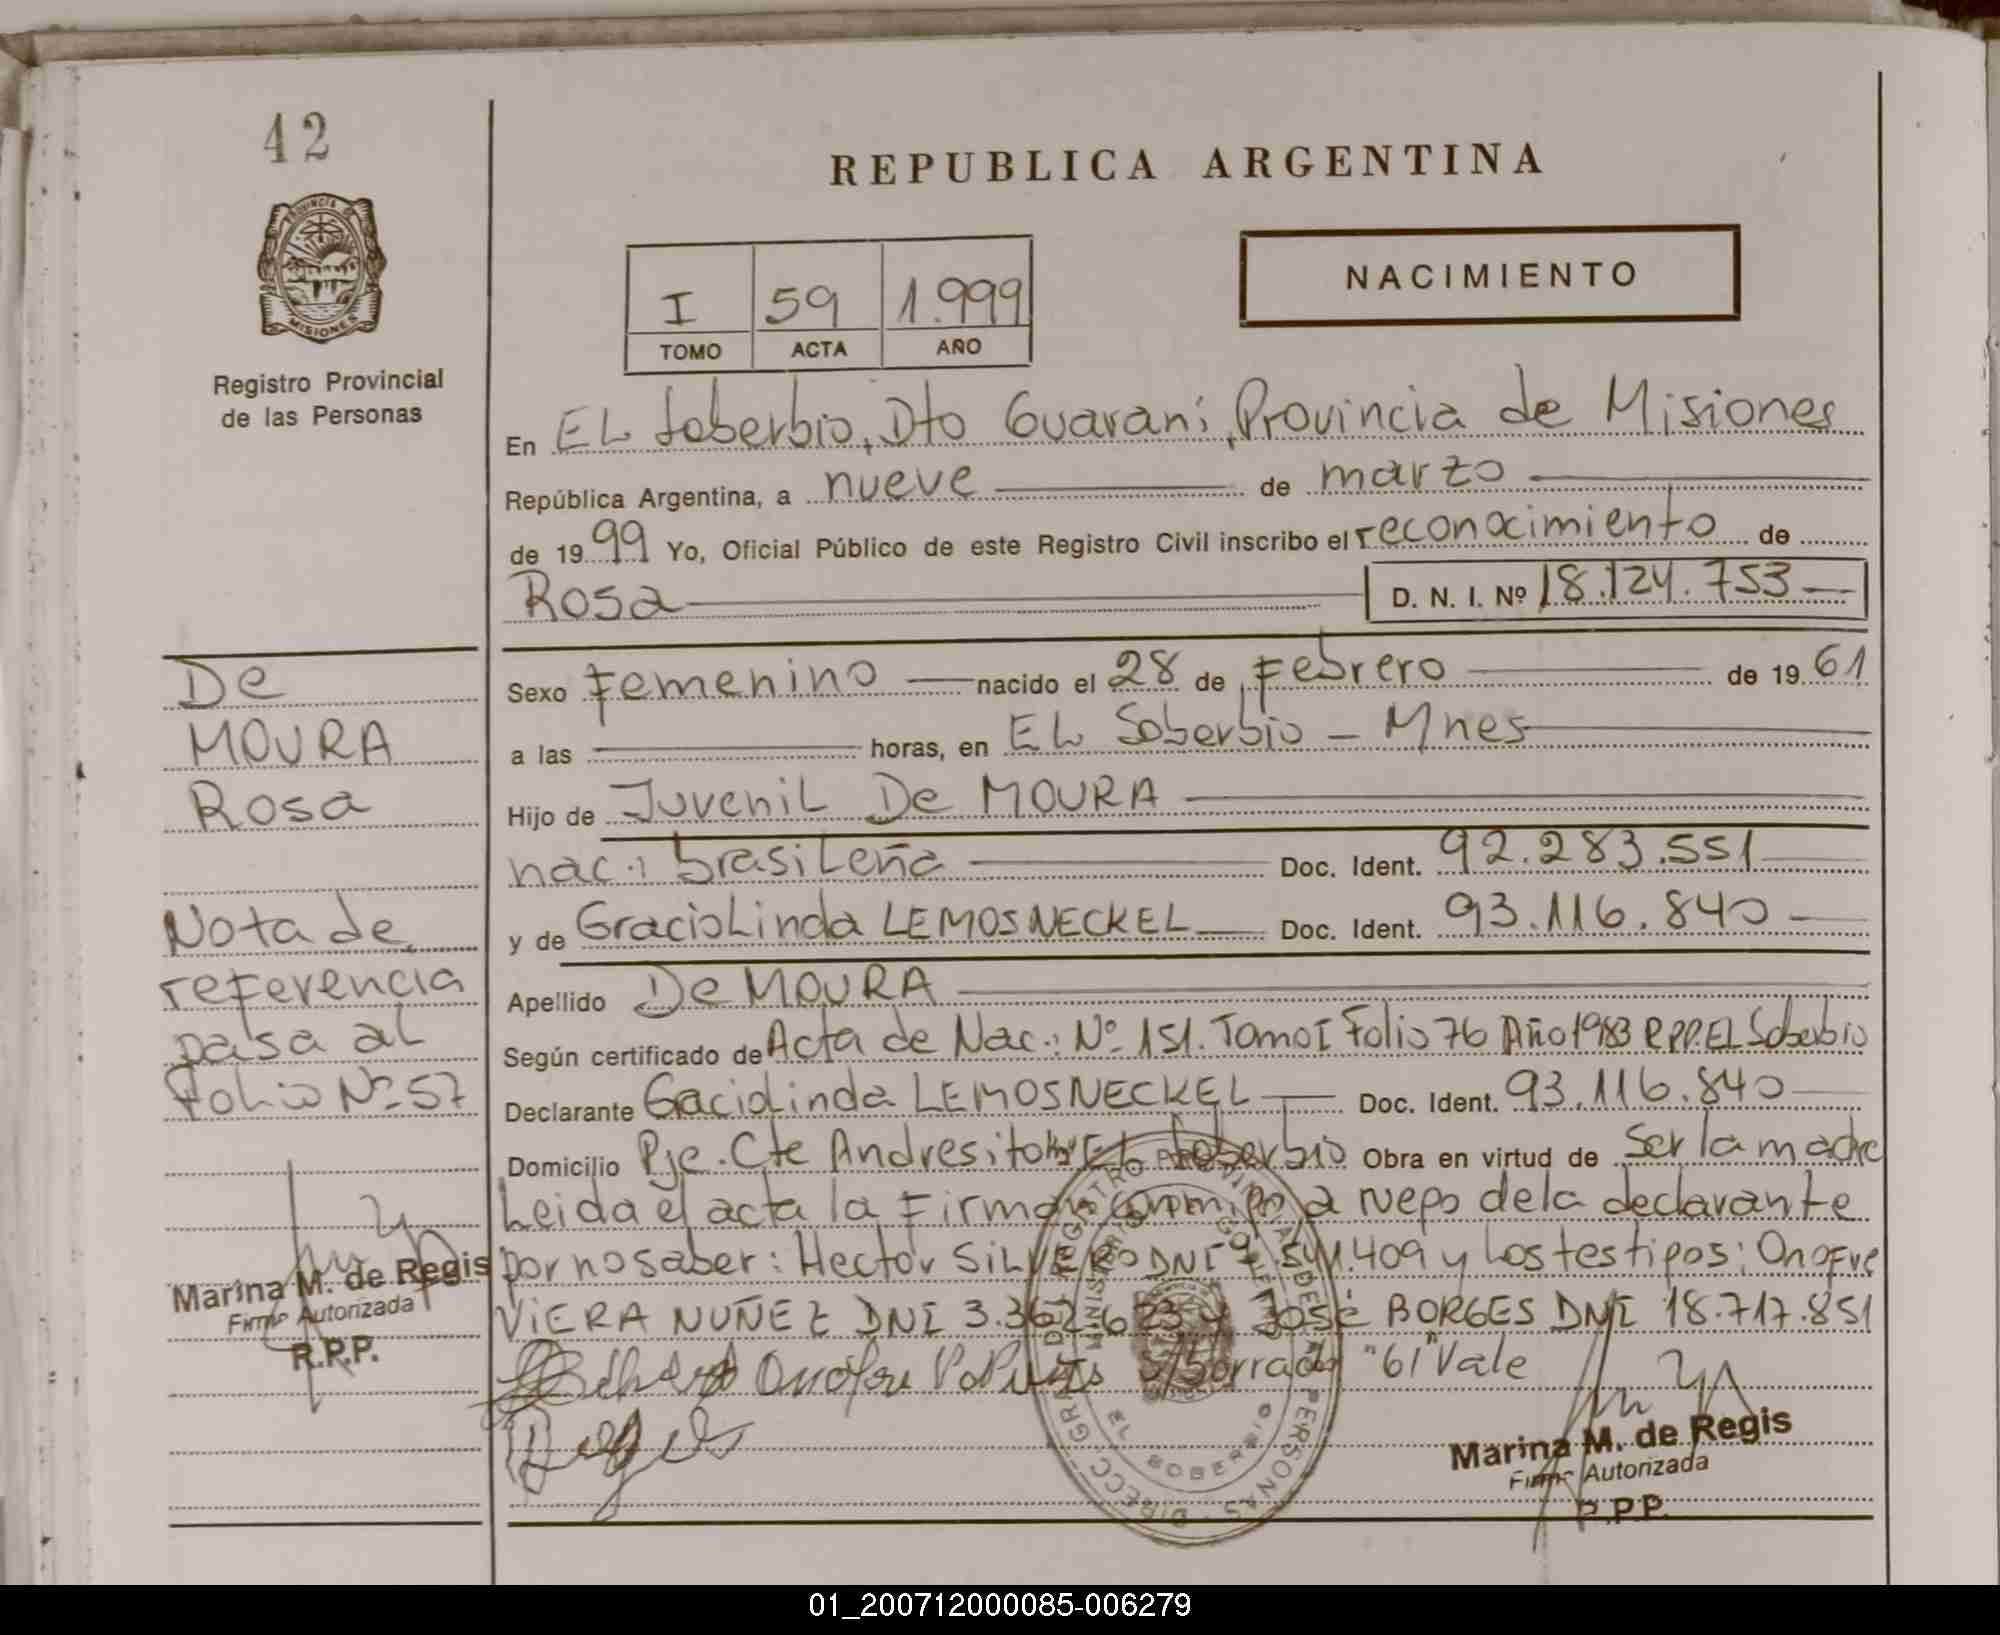 42
PROVINCIA DE
MISIONES
Registro Provincial
de las Personas
REPUBLICA ARGENTINA
NACIMIENTO
I 59 1.999
TOMO ACTA AÑO
En EL Soberbio, Dto Guaraní, Provincia de Misiones
República Argentina, a nueve de marzo
de 1999 Yo, Oficial Público de este Registro Civil inscribo el reconocimiento de
Rosa D. N. I. Nº 18.124.753
De
MOURA
Rosa
Nota de
referencia
pasa al
Folio Nº 57
Marina M. de Regis
Firma Autorizada
R.P.P.
Sexo Femenino nacido el 28 de Febrero de 1961
a las horas, en EL Soberbio - Mnes
Hijo de Juvenil De MOURA
nac.: brasileña Doc. Ident. 92.283.551
y de Graciolinda LEMOS NECKEL Doc. Ident. 93.116.840
Apellido De MOURA
Según certificado de Acta de Nac.: Nº 151. Tomo I Folio 76 Año 1983 R.P.P. EL Soberbio
Declarante Gaciolinda LEMOS NECKEL Doc. Ident. 93.116.840
Domicilio Pje. Cte Andresito EL Soberbio Obra en virtud de Ser la madre
Leida el acta la Firman conmigo a ruego de la declarante
por no saber: Hector SILVERO DNI 541.409 y Los testigos: Onofre
VIERA NUÑEZ DNI 3.362.623 y José BORGES DNI 18.717.851
S/borrado "61" Vale
DIRECC. GRAL. DEL REGISTRO PROVINCIAL DE LAS PERSONAS
MINISTERIO GOBIERNO
EL SOBERBIO
Marina M. de Regis
Firma Autorizada
R.P.P.
01_200712000085-006279